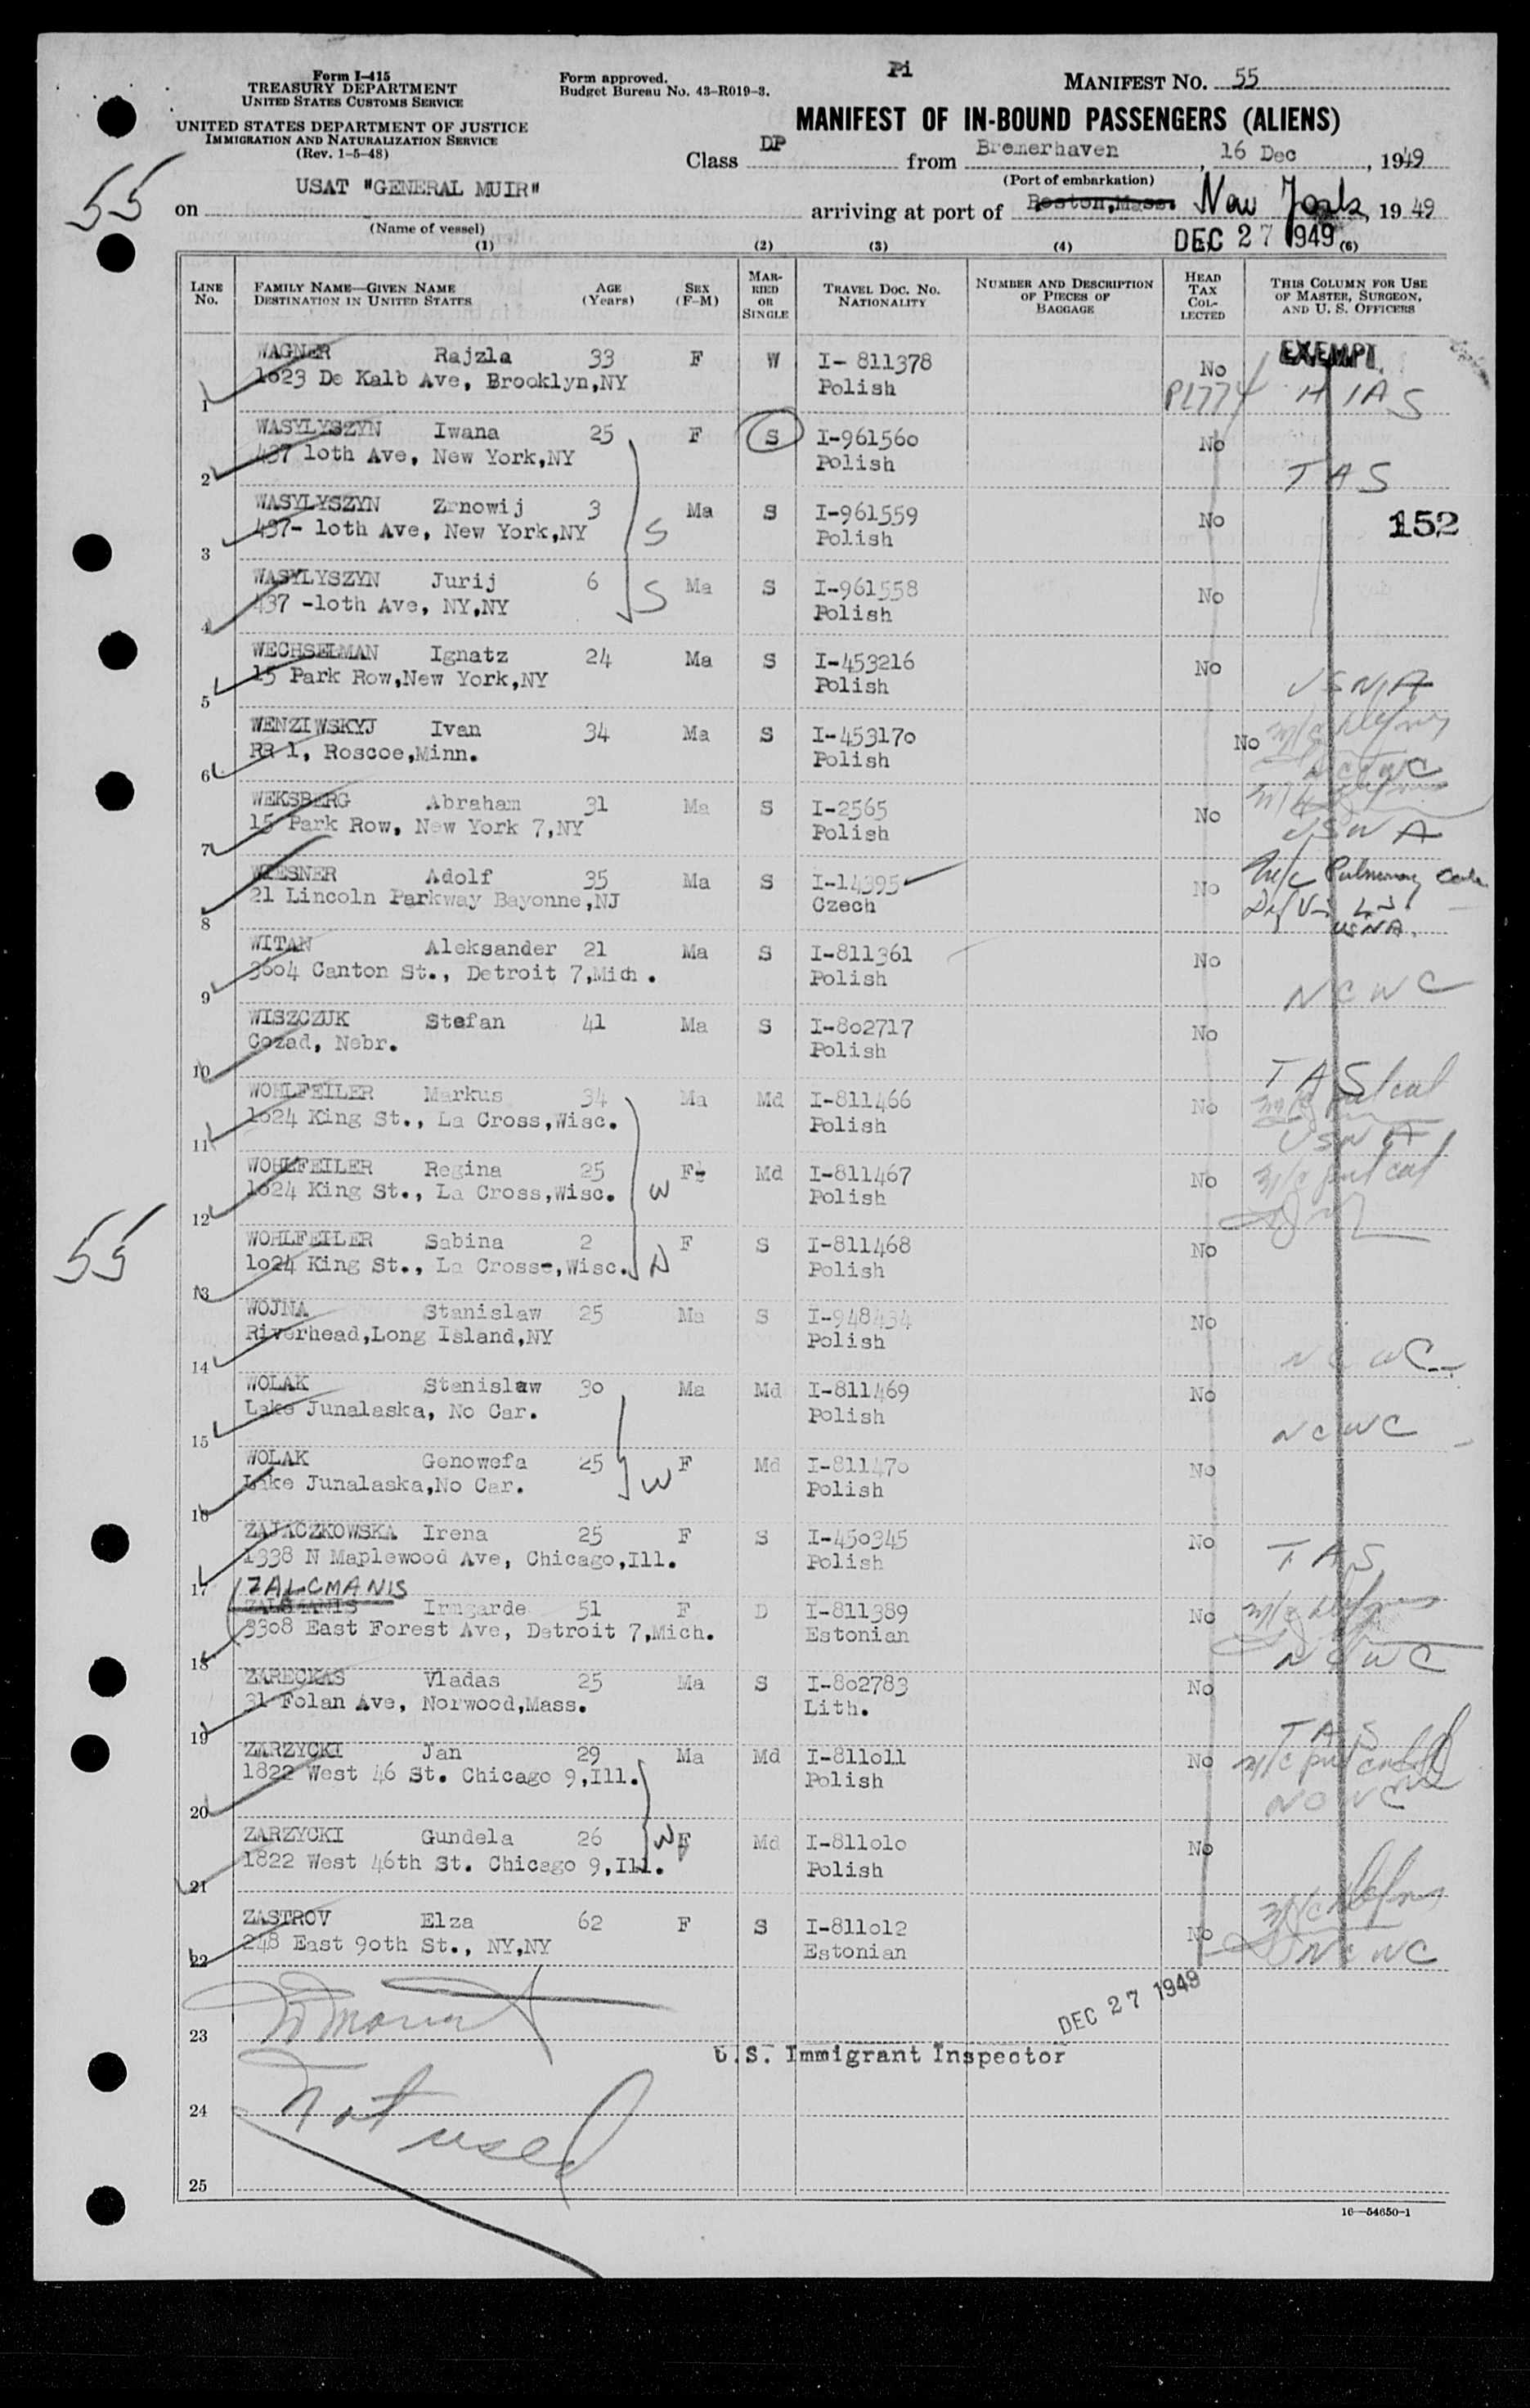 Form I-415
TREASURY DEPARTMENT
UNITED STATES CUSTOMS SERVICE
UNITED STATES DEPARTMENT OF JUSTICE
IMMIGRATION AND NATURALIZATION SERVICE
(Rev. 1-5-48)
Form approved.
Budget Bureau No. 43-R019-3.
Pi
MANIFEST NO. 55
MANIFEST OF IN-BOUND PASSENGERS (ALIENS)
Class DP from Bremerhaven, 16 Dec, 1949
(Port of embarkation)
55
on USAT "GENERAL MUIR" arriving at port of Boston, Mass. New York, 1949
(Name of vessel)
DEC 27 1949
(1) (2) (3) (4) (6)
LINE No. FAMILY NAME—GIVEN NAME DESTINATION IN UNITED STATES AGE (Years) SEX (F-M) MARRIED OR SINGLE TRAVEL DOC. NO. NATIONALITY NUMBER AND DESCRIPTION OF PIECES OF BAGGAGE HEAD TAX COLLECTED THIS COLUMN FOR USE OF MASTER, SURGEON, AND U. S. OFFICERS
WAGNER Rajzla 33 F W I- 811378 No EXEMPT
1 1o23 De Kalb Ave, Brooklyn,NY Polish PL774 HIAS
WASYLYSZYN Iwana 25 F S I-96156o No
2 437 loth Ave, New York,NY Polish TAS
WASYLYSZYN Zrnowij 3 Ma S I-961559 No 152
3 437- loth Ave, New York,NY S Polish
WASYLYSZYN Jurij 6 S Ma S I-961558 No
4 437 -loth Ave, NY,NY Polish
WECHSELMAN Ignatz 24 Ma S I-453216 No
5 15 Park Row,New York,NY Polish USNA
WENZIWSKYJ Ivan 34 Ma S I-45317o No
6 RR 1, Roscoe,Minn. Polish NCWC
WEKSBERG Abraham 31 Ma S I-2565 No
7 15 Park Row, New York 7,NY Polish USNA
WIESNER Adolf 35 Ma S I-14395 No M/c Pulmonary
8 21 Lincoln Parkway Bayonne,NJ Czech USNA.
WITAN Aleksander 21 Ma S I-811361 No
9 36o4 Canton St., Detroit 7,Mich. Polish NCWC
WISZCZUK Stefan 41 Ma S I-8o2717 No
10 Cozad, Nebr. Polish TAS
WOHLFEILER Markus 34 Ma Md I-811466 No m/c pul cal
11 1o24 King St., La Cross,Wisc. Polish USNA
WOHLFEILER Regina 25 F Md I-811467 No m/c pul cal
12 1o24 King St., La Cross,Wisc. W Polish
55
WOHLFEILER Sabina 2 F S I-811468 No
13 1o24 King St., La Crosse,Wisc. D Polish
WOJNA Stanislaw 25 Ma S I-948434 No
14 Riverhead,Long Island,NY Polish NCWC
WOLAK Stanislaw 3o Ma Md I-811469 No
15 Lake Junalaska, No Car. Polish NCWC
WOLAK Genowefa 25 F Md I-81147o No
16 Lake Junalaska,No Car. W Polish
ZAJACZKOWSKA Irena 25 F S I-45o345 No
17 1338 N Maplewood Ave, Chicago,Ill. Polish TAS
ZALCMANIS
Irmgarde 51 F D I-811389 No
18 33o8 East Forest Ave, Detroit 7,Mich. Estonian NCWC
ZARECKAS Vladas 25 Ma S I-8o2783 No
19 31 Folan Ave, Norwood,Mass. Lith. TAS
ZARZYCKI Jan 29 Ma Md I-811o11 No m/c pul
20 1822 West 46 St. Chicago 9,Ill. Polish NCWC
ZARZYCKI Gundela 26 W F Md I-811o1o No
21 1822 West 46th St. Chicago 9,Ill. Polish
ZASTROV Elza 62 F S I-811o12 No
22 248 East 9oth St., NY,NY Estonian NCWC
DEC 27 1949
23
U.S. Immigrant Inspector
24 Not used
25
16—54650-1